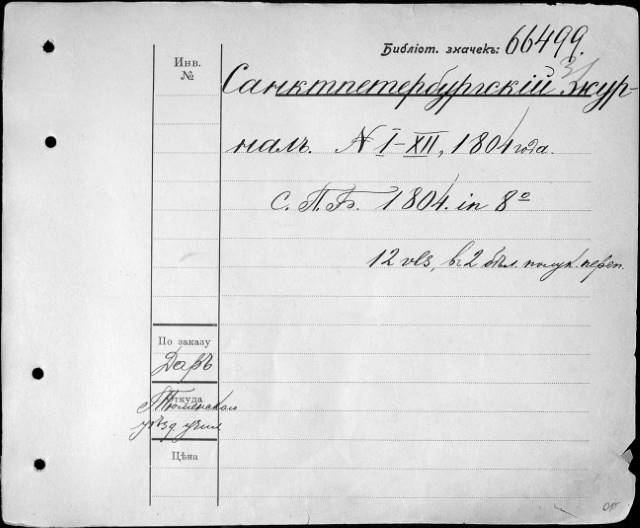 Библіот. значекъ: 66499.
Инв.
№
Санктпетербургскій жур-
налъ. N I-XII, 1804 года.
С.П.Б. 1804. in 8º
12 vls, въ 2 бѣл. полук. переп.
По заказу
Даръ
Откуда
Тюменскаго
уѣзд. учил
Цѣна